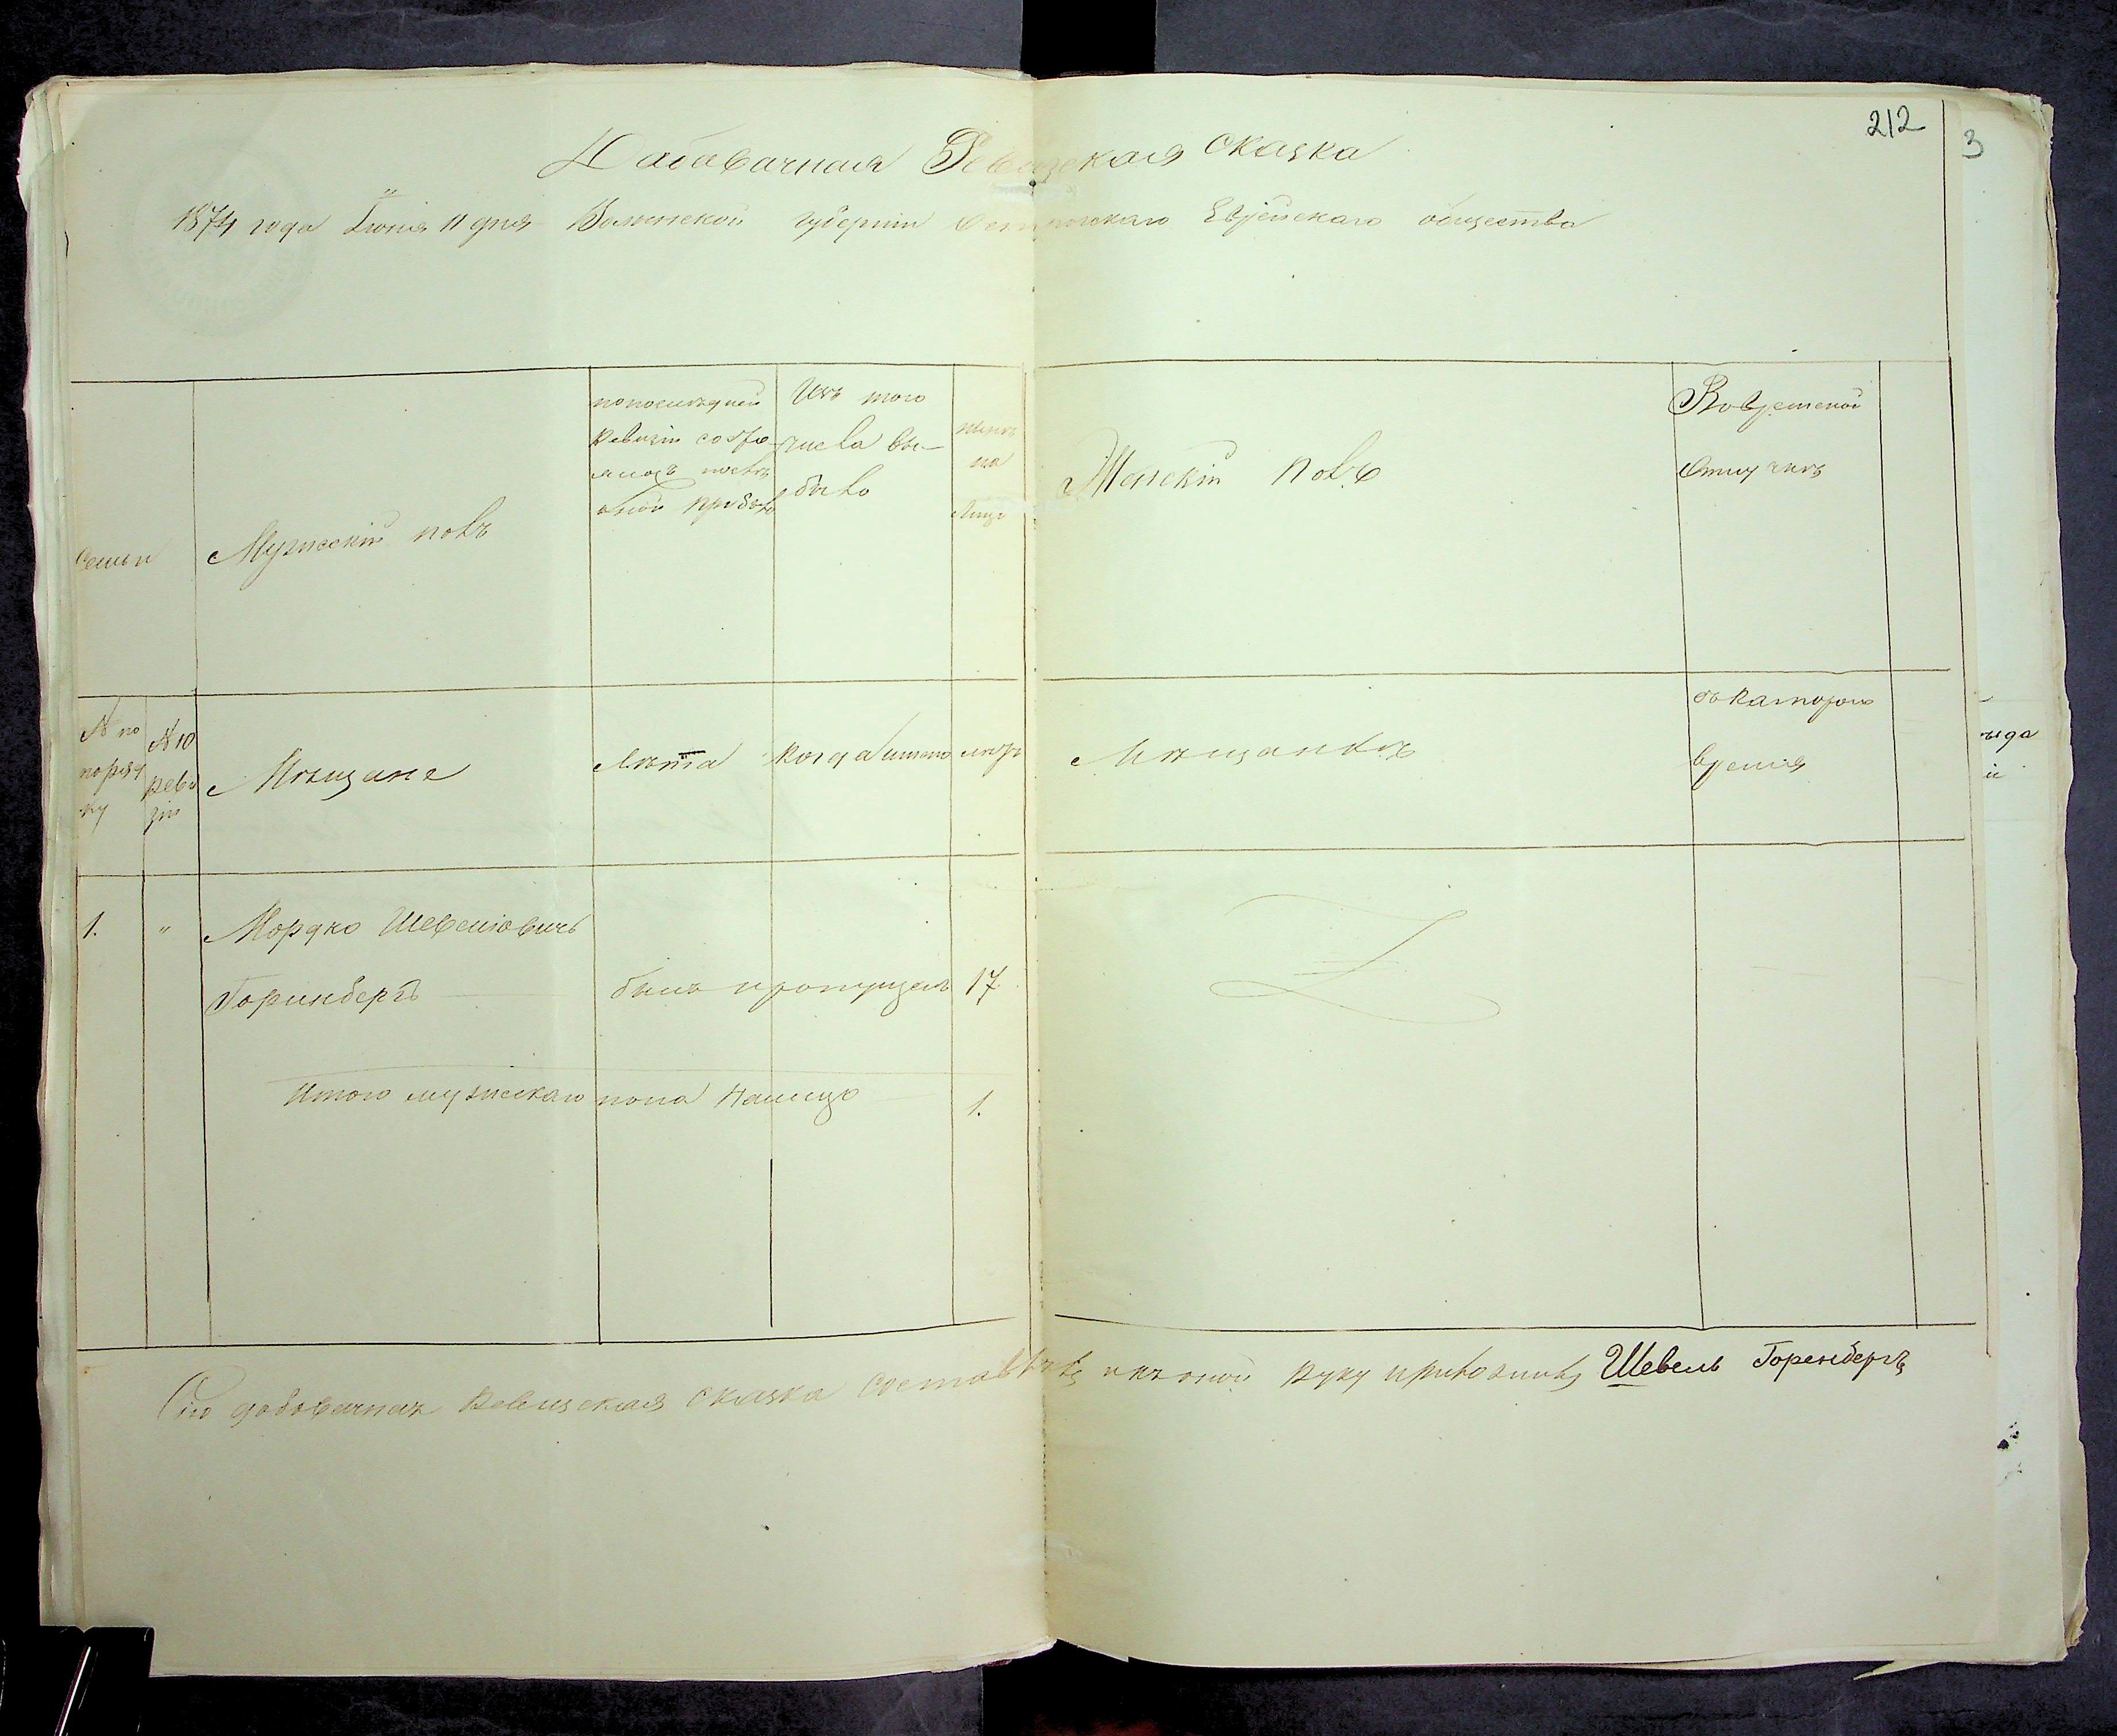 212
3
Дабавачная Ревизская сказка
1874 года Іюня 11 дня Волынской губерніи Острожскаго Еврейскаго общества
Семьи
Мужескій полъ
по последней
Ревизіи состо
яло и после
оной прибыло
Изъ того
числа вы-
было
нынѣ
на
лицо
Женскій полъ
Вовременой
отлучкѣ
№ по
поряд
ку
№ 10
реви
зіи
Мѣщане
Лѣта
Когда имено
лѣтъ
Мѣщанкѣ
съ каторого
время
1.
"
Мордко Шевелювичъ
Горинбергъ
былъ пропущенъ
17
Итого мужескаго пола налицо
1.
Сію добовачная Ревизская сказка составилъ и къ оной руку приложилъ Шевель Горенбергъ